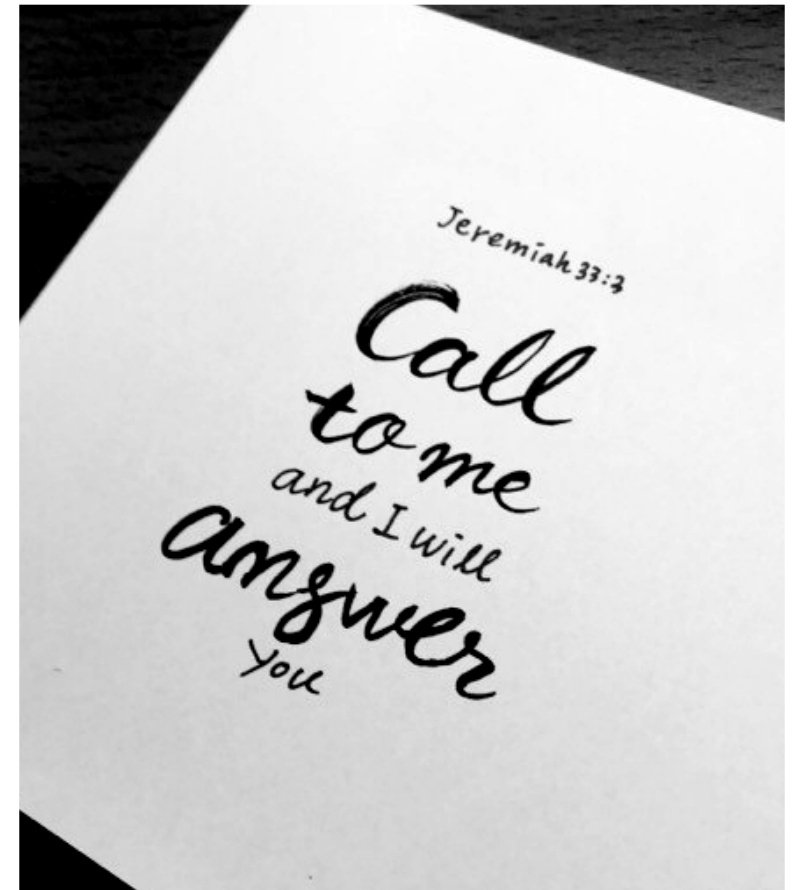 Jeremiah 33:3
Call
to me
and I will
answer
you